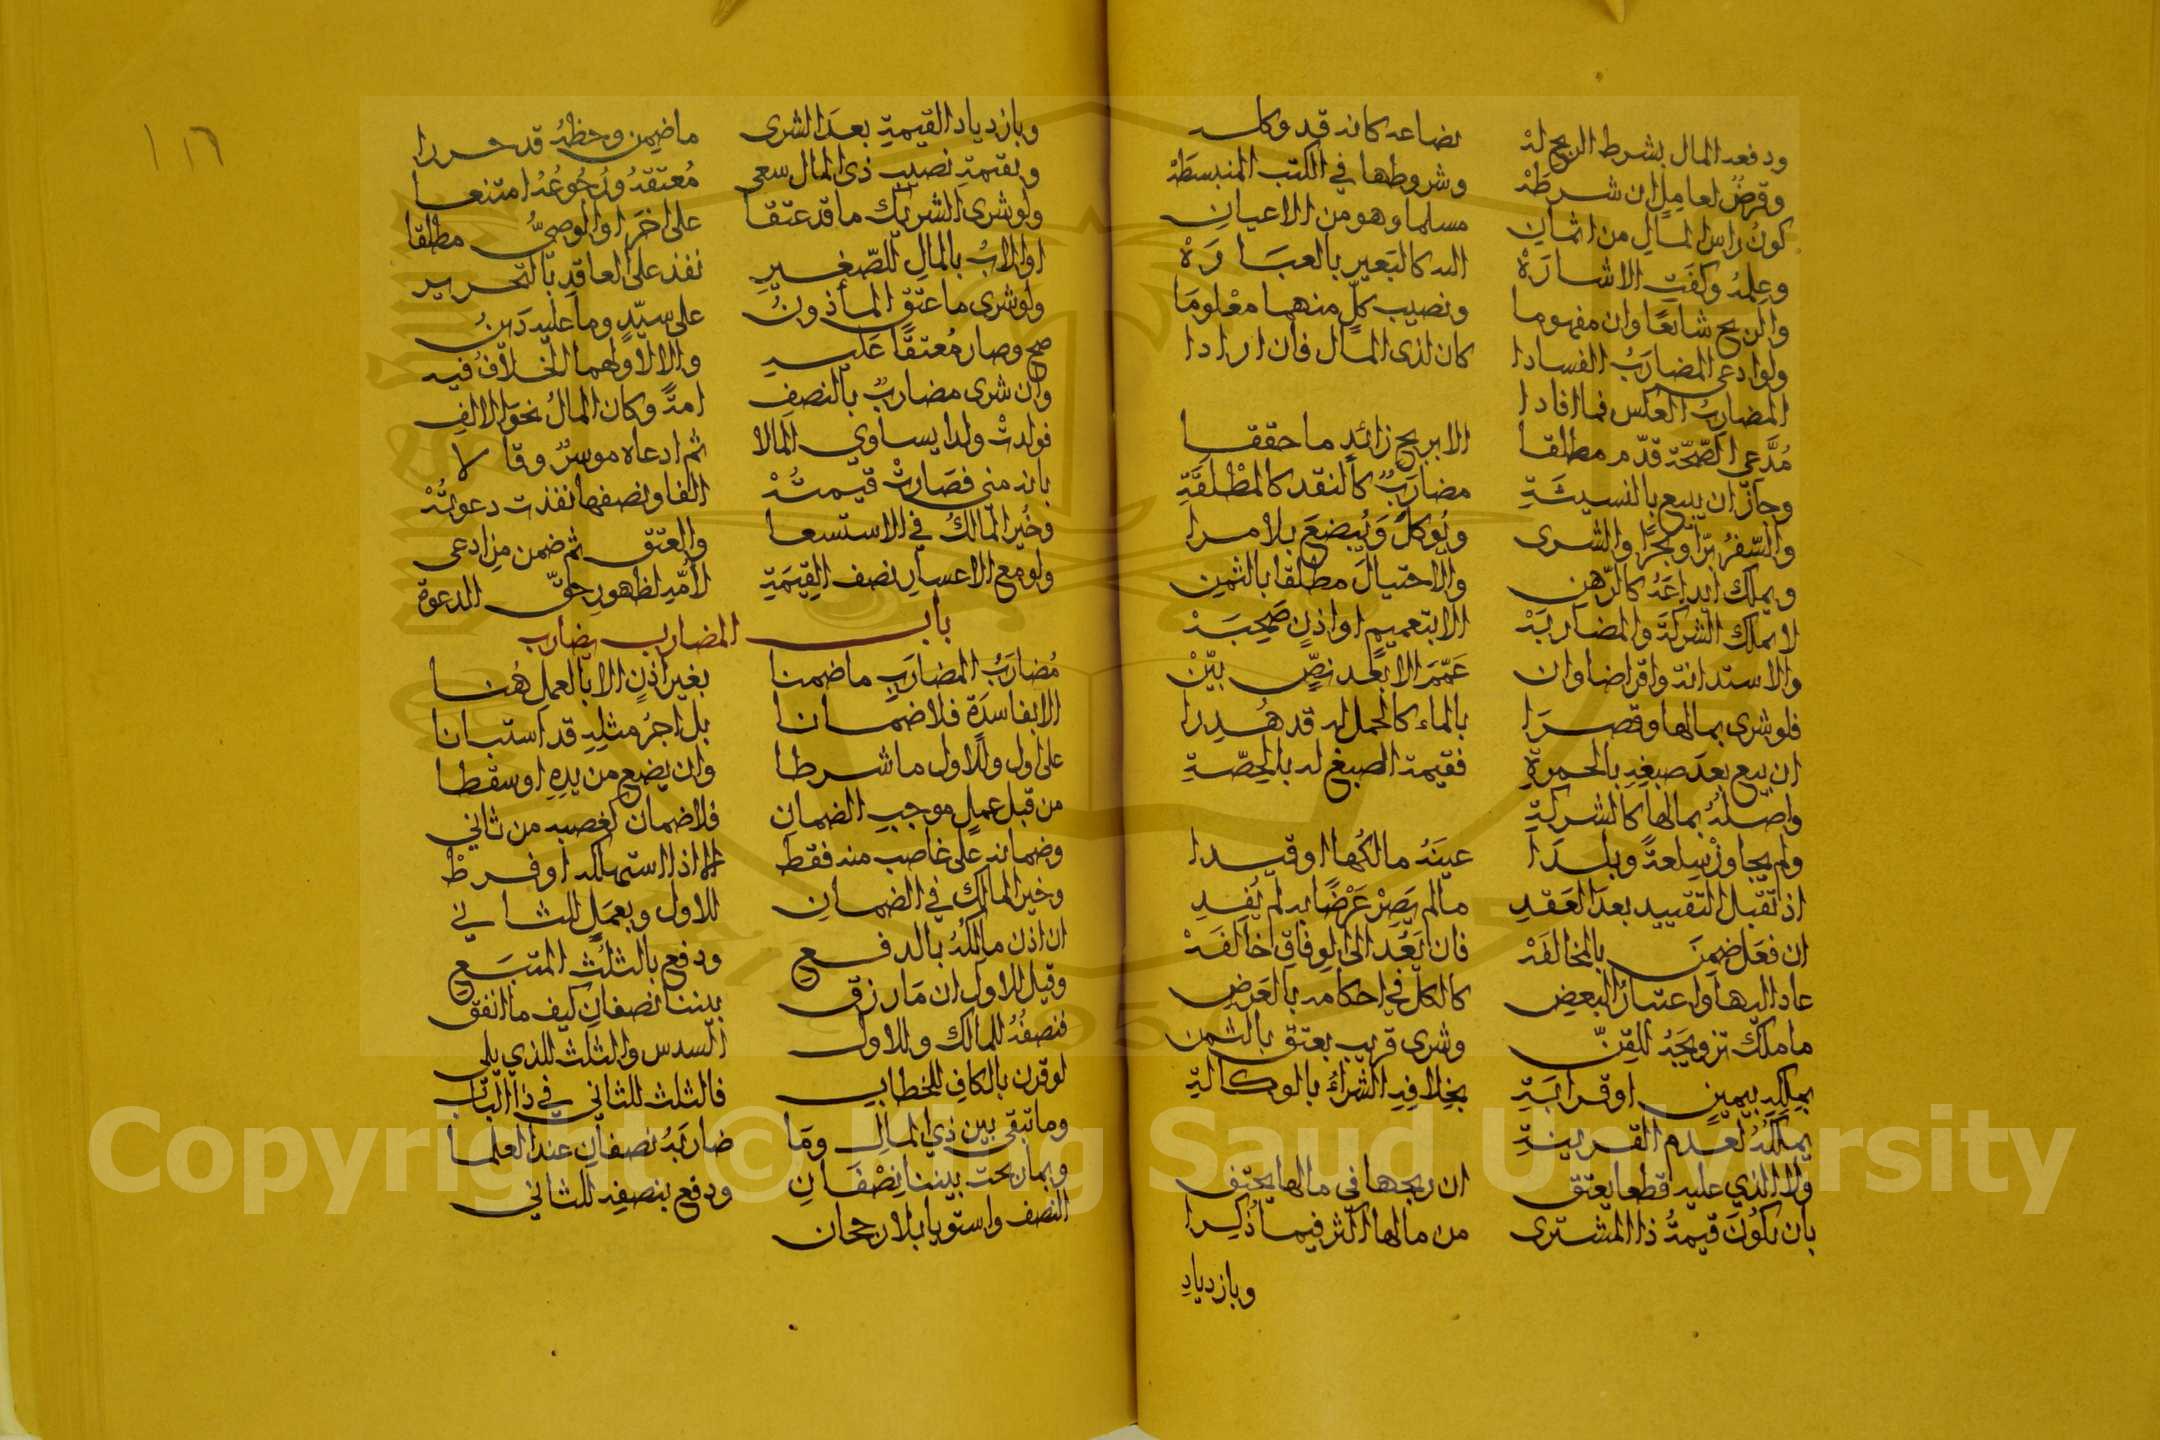 ودفعه المال بشرط الربح له بضاعة كانه قد وكله
وقرض لعامل ان شرطه وشروطها في الكتب المنبسطه
كون راس المال من اثمان مسلما وهو من الاعيان
وعلمه وكفت الاشاره اليه كالبعير بالعباره
والربح شائعا وان مفهوما ونصيب كل منهما معلوما
ولو ادعى المضارب الفسادا كان لذى المال فان ارادا
المضارب العكس فما افادا
مدعى الصحة قدم مطلقا الا بربح زائد ما حققا
وجاز ان يبيع بالنسيئة مضارب كالنقد كالمطلقة
والسفر برا وبحرا والشرى ويوكل ويبضع بلا مرا
ويملك ايداعه كالرهن والاحتيال مطلقا بالثمن
لا يملك الشركة والمضاربه الا بتعميم او اذن صحبه
والاستدانة واقراضا وان عمم الا بعد نص بين
فلو شرى بمالها وقصرا بالماء كالحمل له قد هدرا
ان بيع بعد صبغه بالحمرة فقيمة الصبغ له بالحصة
واصله بمالها كالشركة
ولم يجاوز سلعة وبلدا عينه مالكها او قيدا
اذ تقبل التقييد بعد العقد مالم يصر عرضا به لم يفد
ان فعل ضمن بالمخالفه فان يعد الى الوفاق خالفه
عاد اليها واعتبار البعض كالكل في احكامه بالعرض
ما ملك تزويجه للقن وشرى قريب يعتق بالثمن
بملكه بيمين او قرابة بخلافه الشراء بالوكالة
يملكه لعدم القرينة
ولا الذي عليه قطعا يعتق ان ربحها في مالها يحقق
بان يكون قيمة ذا المشترى من مالها اكثر فيما ذكرا
وبازدياد
١١٦
وبازدياد القيمة بعد الشرى ما ضمن وحظه قد حررا
وبقيمة نصيب ذى المال سعى معتقه ورجوعه امتنعا
ولو شرى الشريك ما قد عتقا على اخر او الوصي مطلقا
او الاب بالمال للصغير نفذ على العاقد بالتحرير
ولو شرى ما عتق المأذون على سيد وما عليه دين
صح وصار معتقا عليه والا لا ولهما الخلاف فيه
وان شرى مضارب بالنصف امة وكان المال نحو الالف
فولدت ولدا يساوي المالا ثم ادعاه موسر وقالا
بانه مني فصارت قيمته الفا ونصفها نفذت دعوته
وخير المالك في الاستسعا والعتق ثم ضمن من ادعى
ولو مع الاعسار نصف القيمة لامه لظهور حق الدعوة
باب المضارب يضارب
مضارب المضارب ما ضمنا بغير اذن الا بالعمل هنا
الا بفاسدة فلا ضمانا بل اجر مثله قد استبانا
على اول وللاول ما شرطا وان يضع من يده او سقطا
من قبل عمل موجب الضمان فلا ضمان كغصبه من ثاني
وضمانه على غاصب منه فقط الا اذا استهلكه او فرط
وخير المالك في الضمان للاول وبعمل الثاني
ان اذن مالكه بالدفع ودفع بالثلث المتبع
وقيل للاول ان ما رزق بيننا نصفان كيف ما اتفق
فنصفه للمالك وللاول السدس والثلث للذي يلي
لو قرن بالكاف للخطاب فالثلث للثاني في ذا الباب
وما تبقى بين ذي المال وما ضاربه نصفان عند العلما
وبما ربحت بيننا نصفان ودفع بنصفه للثاني
النصف واستويا بلا رجحان
Copyright © King Saud University